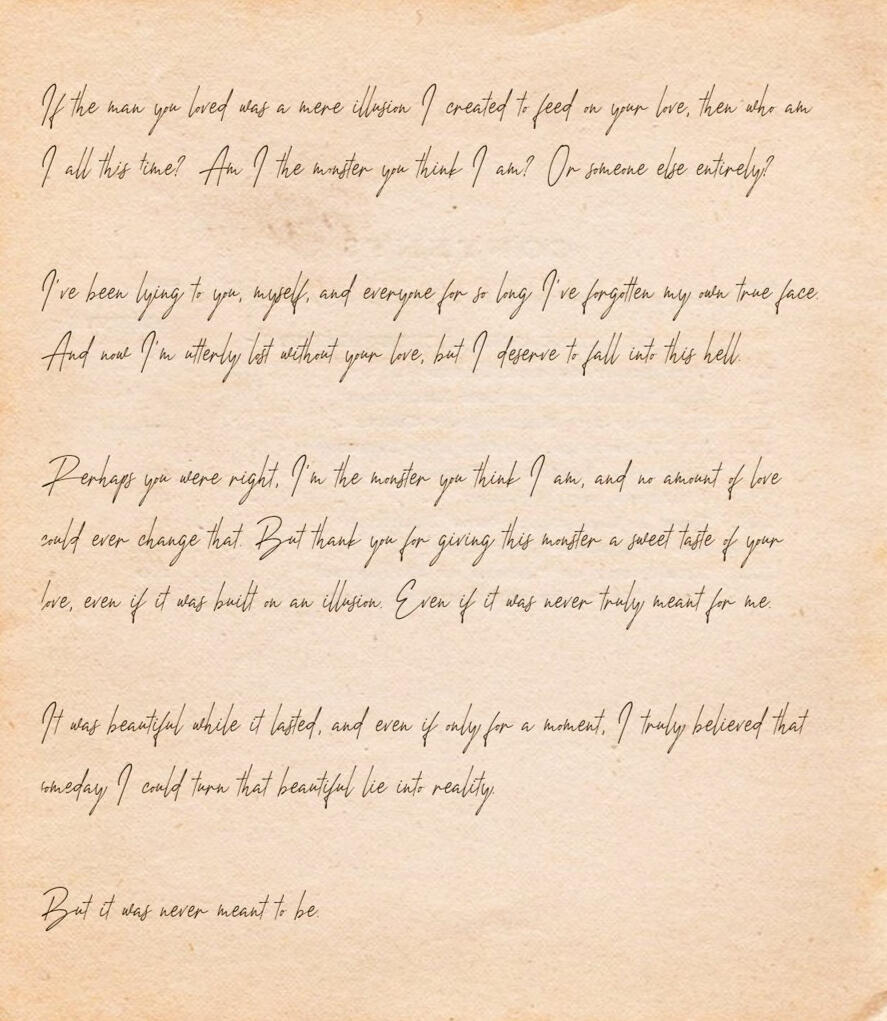 If the man you loved was a mere illusion I created to feed on your love, then who am
I all this time? Am I the monster you think I am? Or someone else entirely?
I've been lying to you, myself, and everyone for so long I've forgotten my own true face.
And now I'm utterly lost without your love, but I deserve to fall into this hell.
Perhaps you were right, I'm the monster you think I am, and no amount of love
could ever change that. But thank you for giving this monster a sweet taste of your
love, even if it was built on an illusion. Even if it was never truly meant for me.
It was beautiful while it lasted, and even if only for a moment, I truly believed that
someday I could turn that beautiful lie into reality.
But it was never meant to be.